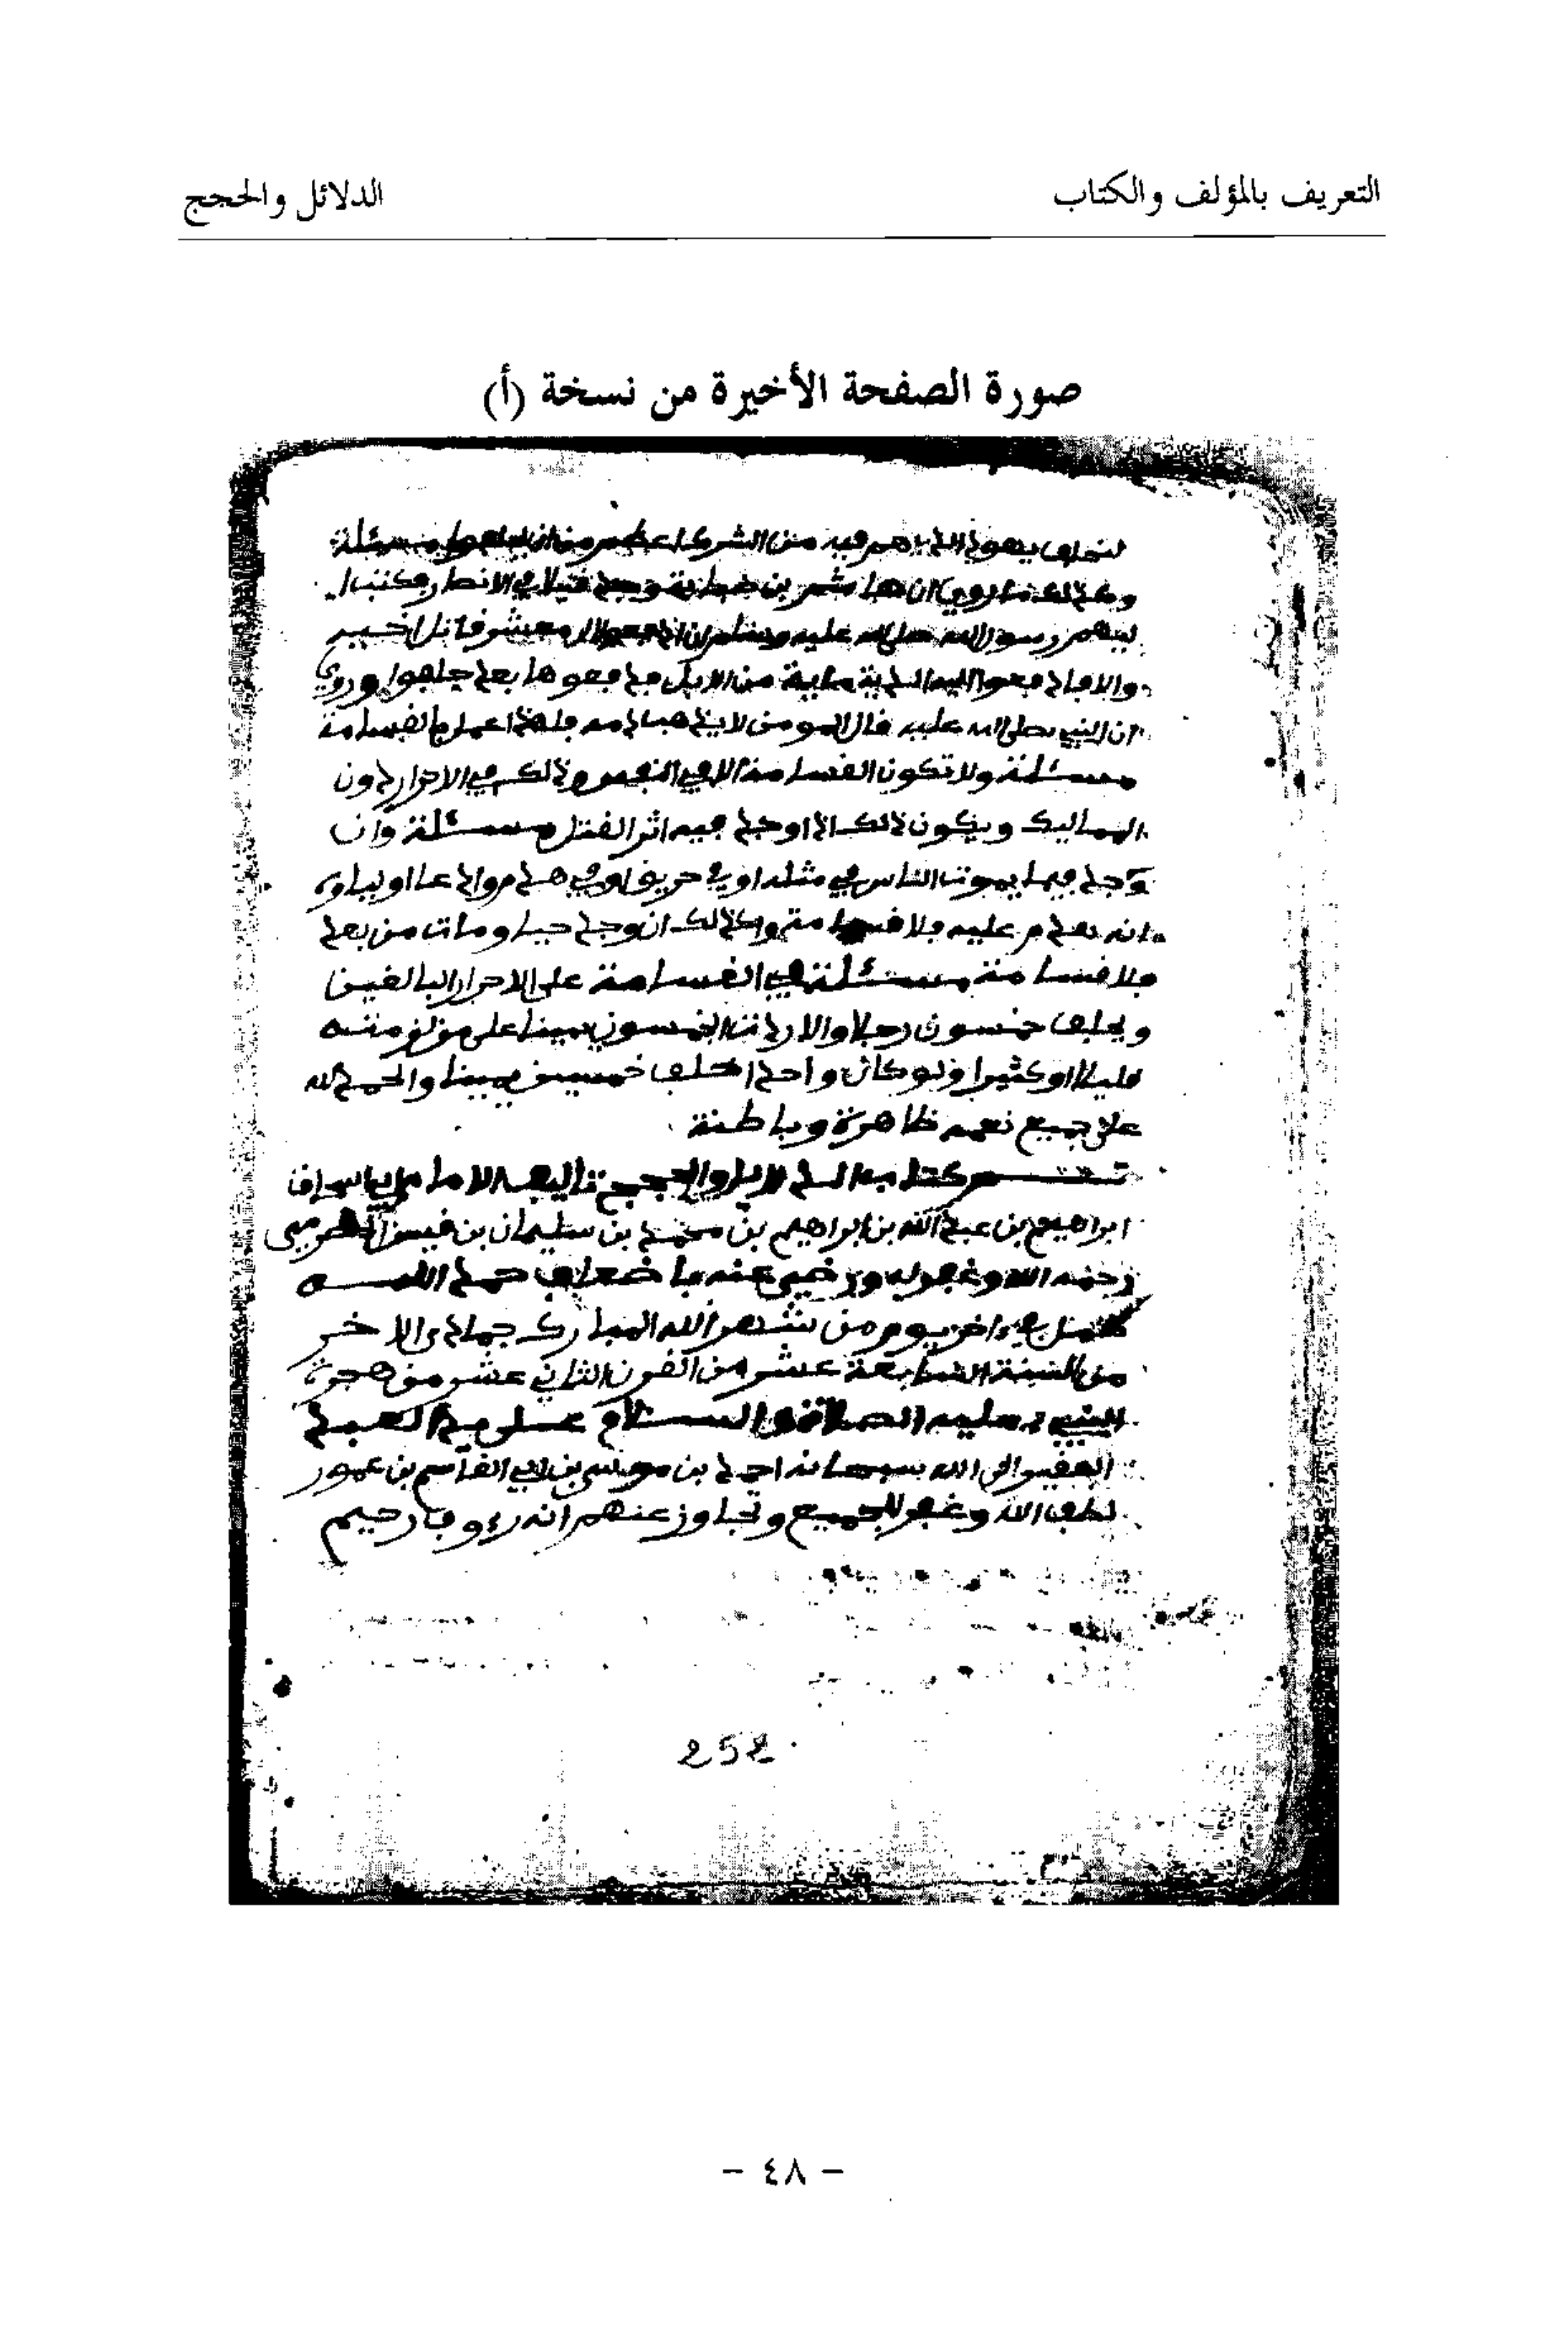 التعريف بالمؤلف والكتاب
الدلائل والحجج
صورة الصفحة الأخيرة من نسخة (أ)
يهود الذين هم فيه من الشرك اعظم من مسئلة
وكذلك ما روي ان وجد قتيلا في الانصار فكتب ا
ليهم رسول الله صلى الله عليه وسلم ان ادفعوا الي معشر قاتل خيبر
والا فادفعوا اليه الدية ماية من الابل فدفعوها بعد حلفوا وروي
ان النبي صلى الله عليه قال المومن لا يذهب دمه فلهذا القسامة
مسئلة ولا تكون القسامة الا في النفس وذلك في الاحرار دون
المماليك ويكون ذلك اذا وجد فيه اثر القتل مسئلة وان
وجد فيما يموت الناس في مثله او في حريق او في هدم او
انه تهدم عليه فلا قسامة وكذلك ان وجد حيا ومات من بعد
فلا قسامة مسئلة في القسامة على الاحرار البالغين
ويحلف خمسون رجلا والا ردت الخمسون يمينا على من
قليلا او كثيرا ولو كان واحدا حلف خمسين يمينا والحمد لله
على جميع نعمه ظاهرة وباطنة
تم كتاب الدلايل والحجج تاليف الامام ابي اسحاق
ابراهيم بن عبد الله بن ابراهيم بن محمد بن سليمان بن قيس الحضرمي
رحمه الله وغفر له ورضي عنه باضعاف حمد الله
كمل في ءاخر يوم من شهر الله المبارك جمادى الاخر
من السنة السابعة عشر من القرن الثاني عشر من هجرة
النبي عليه الصلاة والسلام على يد العبد
الفقير الى الله سبحانه احمد بن موسى بن ابي القاسم بن عمور
لطف الله وغفر للجميع وتجاوز عنهم انه رءوف رحيم
252
- ٤٨ -